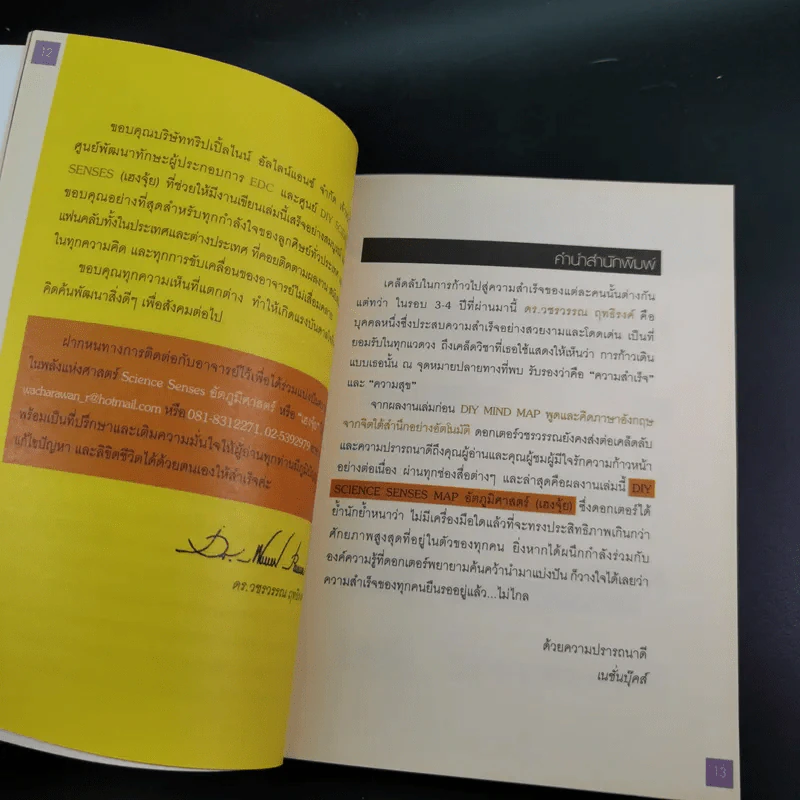 12
ขอบคุณบริษัททริปเปิ้ลไนน์ อัลไลน์แอนซ์ จำกัด
ศูนย์พัฒนาทักษะผู้ประกอบการ EDC และศูนย์ DIY
SENSES (เฮงจุ้ย) ที่ช่วยให้มีงานเขียนเล่มนี้เสร็จอย่างสมบูรณ์
ขอบคุณอย่างที่สุดสำหรับทุกกำลังใจของลูกศิษย์ทั่วประเทศ
แฟนคลับทั้งในประเทศและต่างประเทศ ที่คอยติดตามผลงาน
ในทุกความคิด และทุกการขับเคลื่อนของอาจารย์ไม่เสื่อมคลาย
ขอบคุณทุกความเห็นที่แตกต่าง ทำให้เกิดแรงบันดาลใจ
คิดค้นพัฒนาสิ่งดีๆ เพื่อสังคมต่อไป
ฝากหนทางการติดต่อกับอาจารย์ไว้เพื่อได้ร่วมแบ่งปัน
ในพลังแห่งศาสตร์ Science Senses อัตภูมิศาสตร์ หรือ "เฮงจุ้ย"
wacharawan_r@hotmail.com หรือ 081-8312271, 02-5392979
พร้อมเป็นที่ปรึกษาและเติมความมั่นใจให้ผู้อ่านทุกท่านมีภูมิปัญญา
แก้ไขปัญหา และลิขิตชีวิตได้ด้วยตนเองให้สำเร็จค่ะ
ดร.วชรวรรณ
คำนำสำนักพิมพ์
เคล็ดลับในการก้าวไปสู่ความสำเร็จของแต่ละคนนั้นต่างกัน
แต่ทว่า ในรอบ 3-4 ปีที่ผ่านมานี้ ดร.วชรวรรณ ฤทธิรงค์ คือ
บุคคลหนึ่งซึ่งประสบความสำเร็จอย่างสวยงามและโดดเด่น เป็นที่
ยอมรับในทุกแวดวง ถึงเคล็ดวิชาที่เธอใช้แสดงให้เห็นว่า การก้าวเดิน
แบบเธอนั้น ณ จุดหมายปลายทางที่พบ รับรองว่าคือ "ความสำเร็จ"
และ "ความสุข"
จากผลงานเล่มก่อน DIY MIND MAP พูดและคิดภาษาอังกฤษ
จากจิตใต้สำนึกอย่างอัตโนมัติ ดอกเตอร์วชรวรรณยังคงส่งต่อเคล็ดลับ
และความปรารถนาดีถึงคุณผู้อ่านและคุณผู้ชมผู้มีใจรักความก้าวหน้า
อย่างต่อเนื่อง ผ่านทุกช่องสื่อต่างๆ และล่าสุดคือผลงานเล่มนี้ DIY
SCIENCE SENSES MAP อัตภูมิศาสตร์ (เฮงจุ้ย) ซึ่งดอกเตอร์ได้
ย้ำนักย้ำหนาว่า ไม่มีเครื่องมือใดแล้วที่จะทรงประสิทธิภาพเกินกว่า
ศักยภาพสูงสุดที่อยู่ในตัวของทุกคน ยิ่งหากได้ผนึกกำลังร่วมกับ
องค์ความรู้ที่ดอกเตอร์พยายามค้นคว้านำมาแบ่งปัน ก็วางใจได้เลยว่า
ความสำเร็จของทุกคนยืนรออยู่แล้ว...ไม่ไกล
ด้วยความปรารถนาดี
เนชั่นบุ๊คส์
13